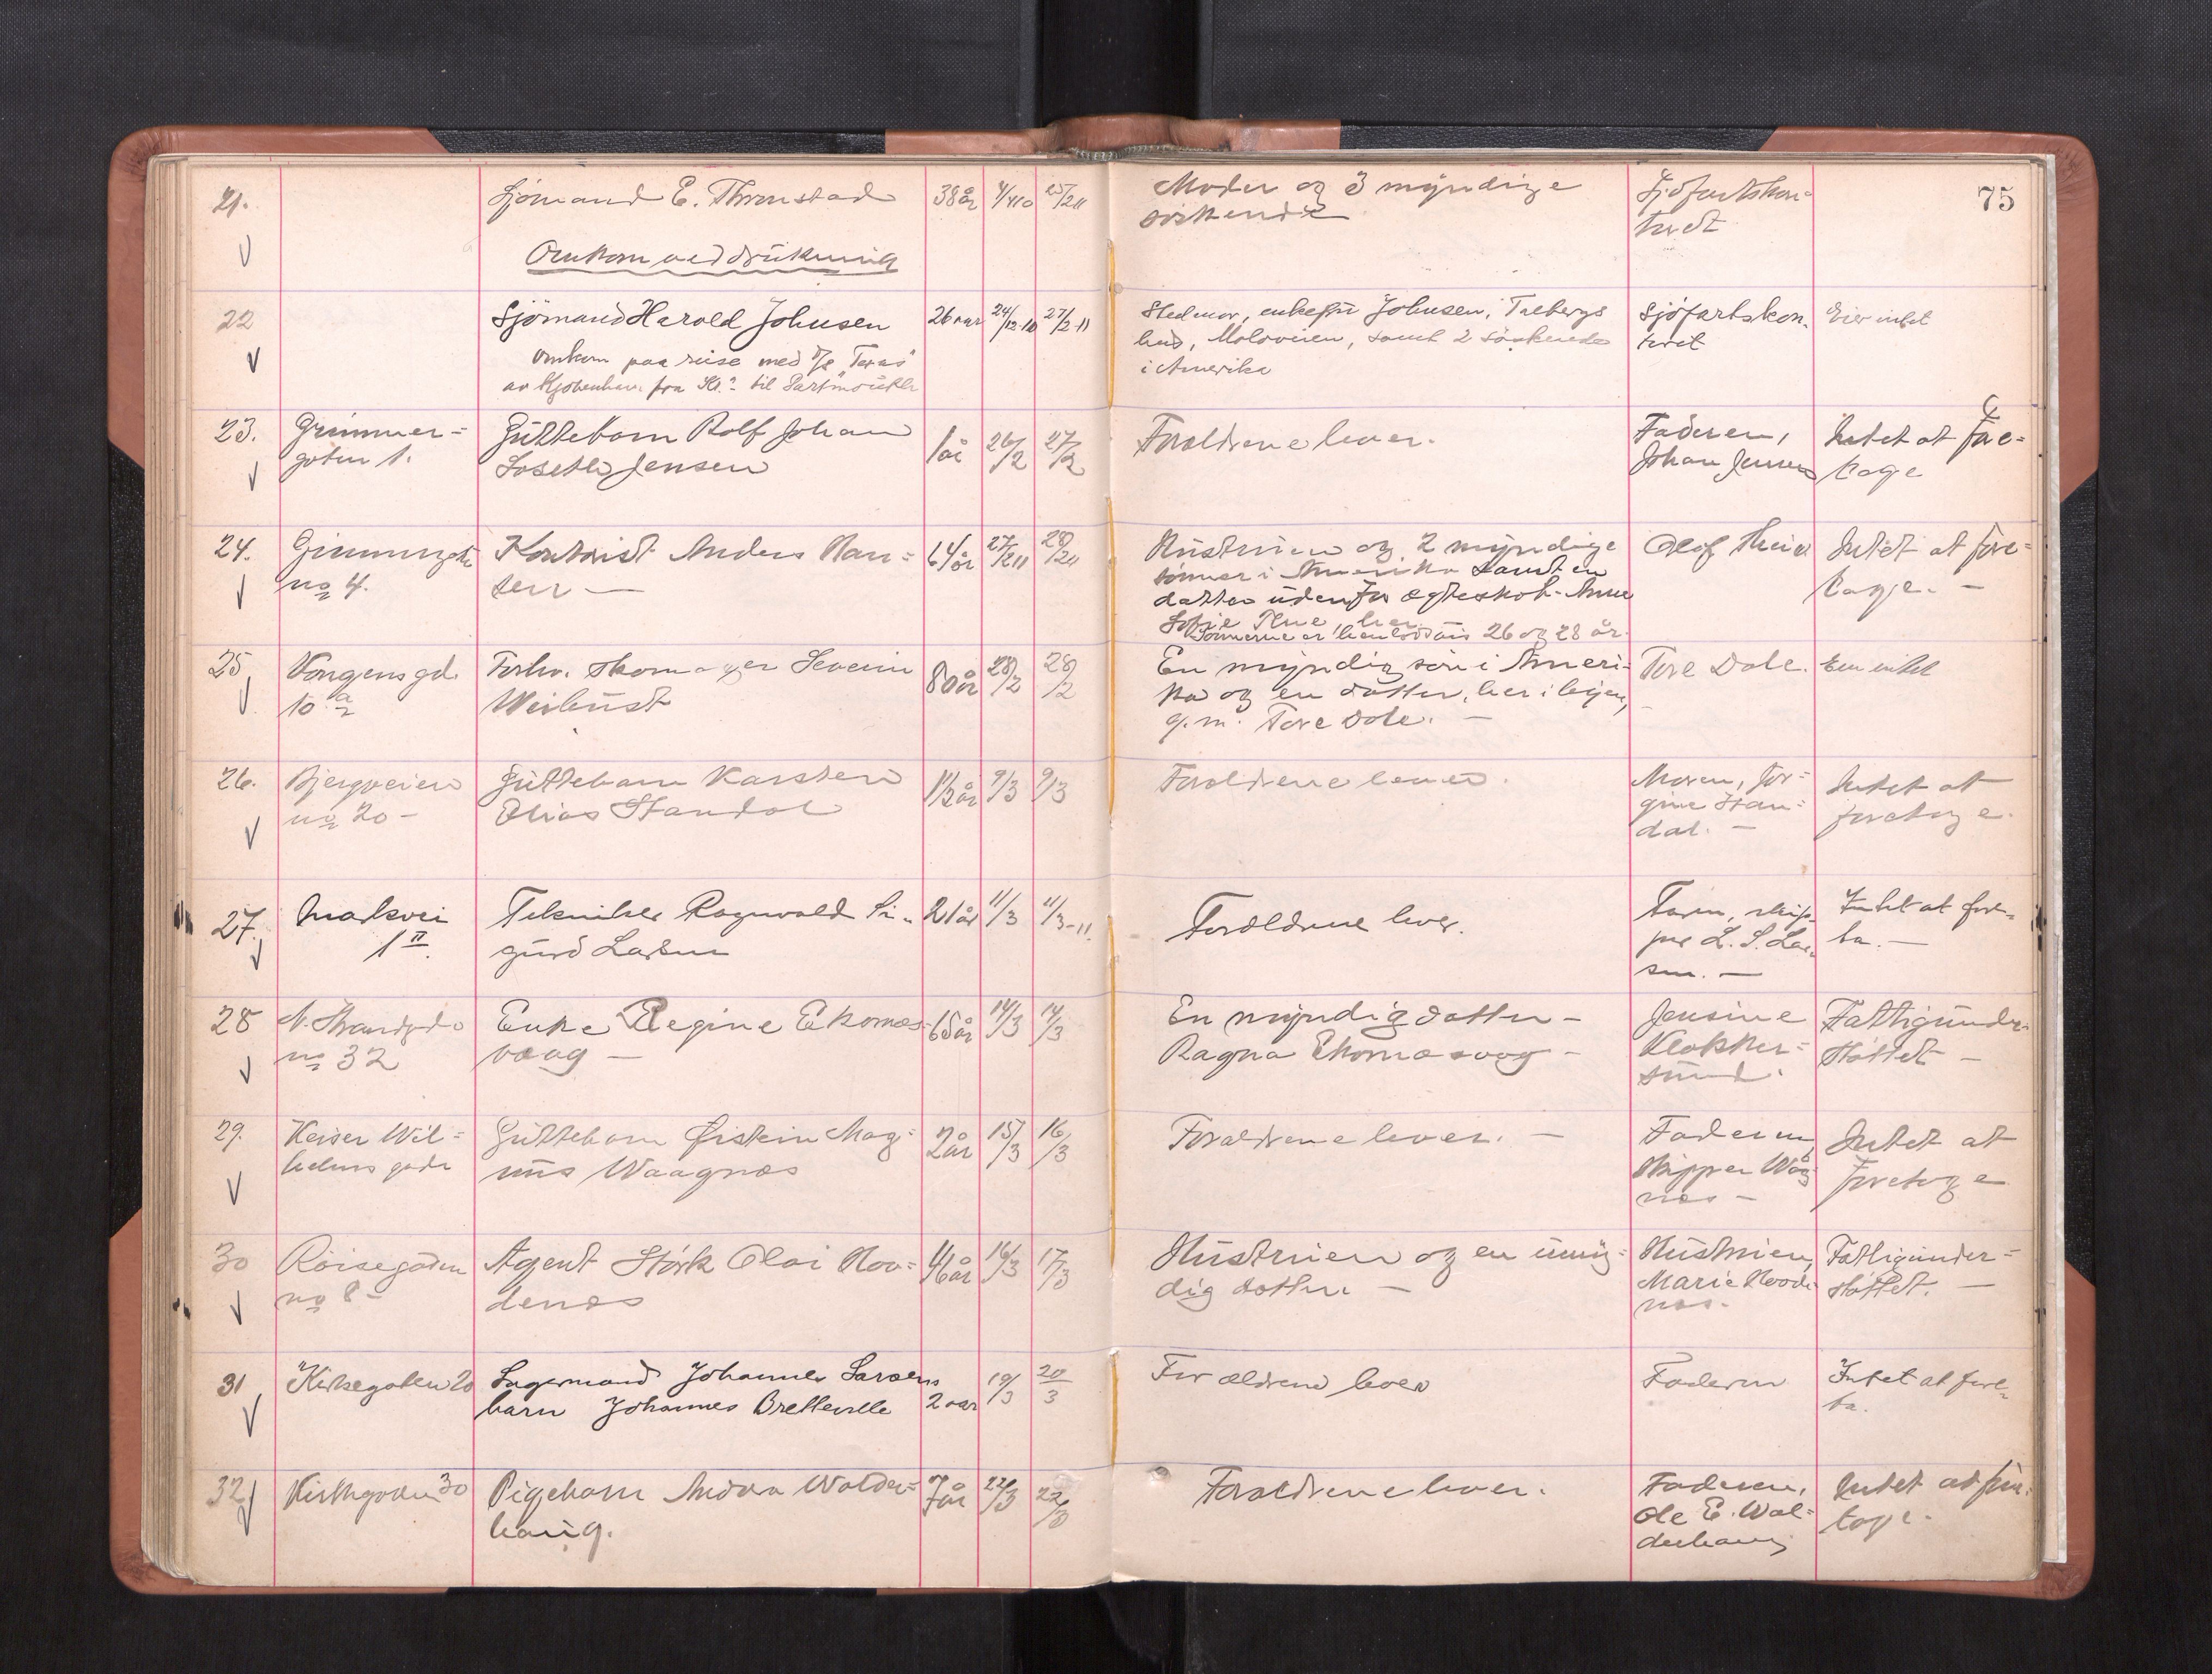 75
21.
Sjömand E. Thronstad
38 år
4/4 10
25/2 11
Moder og 3 myndige
söskende
Sjöfartskon-
toret
Omkom ved drukning
22
Sjömand Harald Johnsen
omkom paa reise med
av Kjøbenhavn fra til
26 aar
24/12-10
27/2-11
Stedmor, enkefru Johnsen, Talbergs
hus, Moloveien, samt 2 söskende
i Amerika
Sjöfartskon-
toret
Eier intet
23.
Grimmer-
gaten 1.
Guttebarn Rolf Johan
Jensen
1 år
26/2
27/2
Forældrene lever.
Faderen,
Johan Jensen
Intet at fore-
tage
24.
Grimmergt.
no 4.
Kontorist Anders Han-
sen —
64 år
27/2 11
28/2 11
Hustruen og 2 myndige
sönner i Amerika samt en
datter udenfor ægteskab. Anne
Sofie her.
Sönnerne er henholdsvis 26 og 28 år.
Olaf
Intet at fore-
tage. —
25
Kongens gd.
10 a
Forhv. skomager Severin
Weibust
80 år
28/2
28/2
En myndig sön i Ameri-
ka og en datter, her i byen,
g. m. Tore Dale. —
Tore Dale.
Eier intet
26.
Bjergveien
no 20 -
Guttebarn Karsten
Elias Standal
1 1/2 år
9/3
9/3
Forældrene lever.
Moren, Jør-
gine Stan-
dal. —
Intet at
foretage.
27.
Marksvei
1 II.
Tekniker Ragnvald Si-
gurd Larsen
21 år
11/3
11/3-11.
Forældrene lever.
Faren, skip-
per L. S. Lar-
sen. —
Intet at fore-
ta. —
28
N. Strandgd.
no 32
Enke Regine Ekornæs-
vaag —
65 år
14/3
14/3
En myndig datter -
Ragna Ekornæsvaag -
Jensine
Klokker-
sund.
Fattigunder-
støttet —
29.
Keiser Wil-
helms gade
Guttebarn Øistein Mag-
nus Waagnæs
2 år
15/3
16/3
Forældrene lever. —
Faderen
Skipper Wåg-
næs —
Intet at
foretage
30
Röisegaden
no 8 -
Agent Störk Olai Noo-
denæs
46 år
16/3
17/3
Hustruen og en umyn-
dig datter. —
Hustruen,
Marie
næs.
Fattigunder-
støttet. —
31
Kirkegaten 20
Lagermand Johannes Larsens
barn Johannes Bretteville
2 aar
19/3
20/3
Forældrene lever
Faderen
Intet at fore-
ta.
32
Kirkegaden 30
Pigebarn Andrea Walder-
haug.
7 år
22/3
22/3
Forældrene lever.
Faderen,
Ole E. Wal-
derhaug
Intet at fore-
tage.